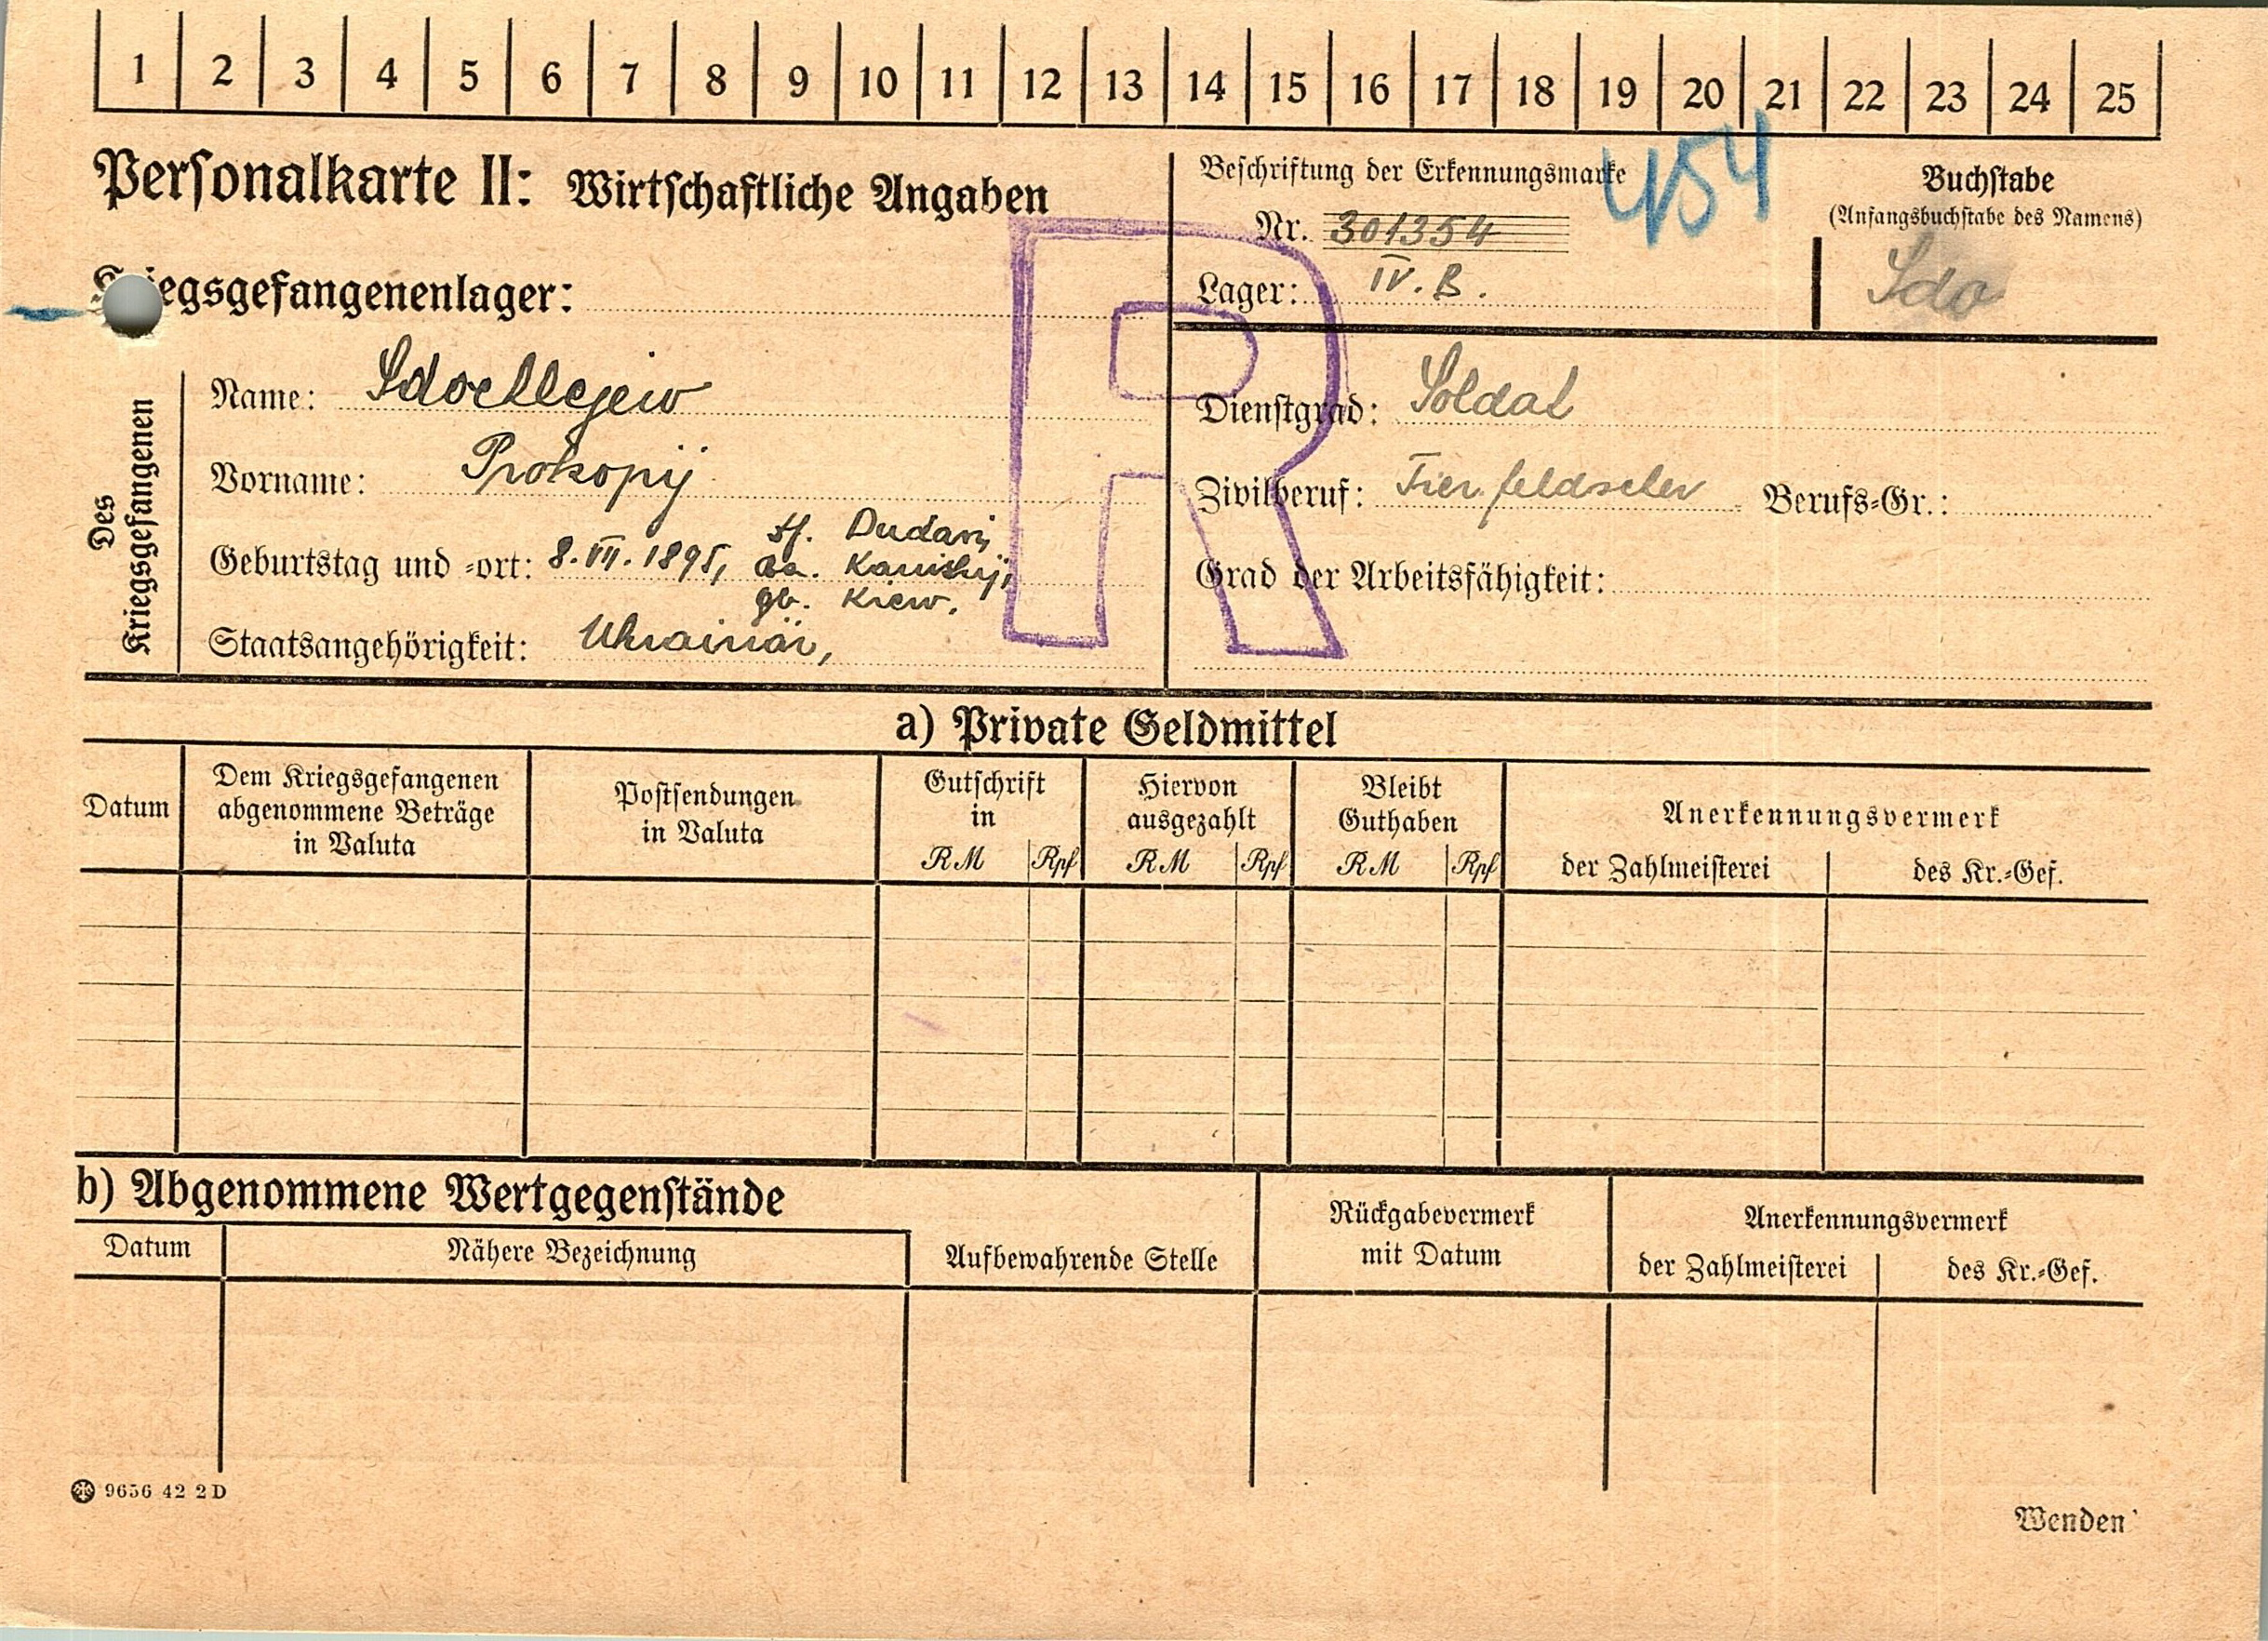 1 2 3 4 5 6 7 8 9 10 11 12 13 14 15 16 17 18 19 20 21 22 23 24 25
Personalkarte II: Wirtschaftliche Angaben
Beschriftung der Erkennungsmarke
454
Nr. 301354
Lager: IV. B.
Buchstabe
(Anfangsbuchstabe des Namens)
Sdo
Kriegsgefangenenlager:
R
Des Kriegsgefangenen
Name:
Vorname: Prokopij
Geburtstag und -ort: 8. VII. 1895,
Dudari,
gb. Kiew,
Staatsangehörigkeit: Ukrainär,
Dienstgrad: Soldat
Zivilberuf: Berufs-Gr.:
Grad der Arbeitsfähigkeit:
a) Private Geldmittel
Datum
Dem Kriegsgefangenen
abgenommene Beträge
in Valuta
Postsendungen
in Valuta
Gutschrift
in
RM Rpf
Hiervon
ausgezahlt
RM Rpf
Bleibt
Guthaben
RM Rpf
Anerkennungsvermerk
der Zahlmeisterei des Kr.-Gef.
b) Abgenommene Wertgegenstände
Datum
Nähere Bezeichnung
Aufbewahrende Stelle
Rückgabevermerk
mit Datum
Anerkennungsvermerk
der Zahlmeisterei des Kr.-Gef.
9656 42 2D
Wenden